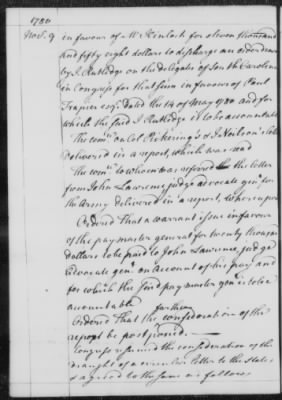 1780
Nov. 9
in favour of Mr Kinloch for eleven thousand
and fifty eight dollars to discharge an order drawn
by J. Rutledge on the delegates of South Carolina
in Congress for that sum in favour of Paul
Trapier esqr. dated the 14 of May 1780 and for
which the said J. Rutledge is to be accountable
The comee. on Col Pickering's & J Neilson's letter
delivered in a report, which was read
The comee. to whom was referred the letter
from John Lawrence judge advocate genl. for
the army delivered in a report, whereupon
Ordered That a warrant issue in favour
of the pay master general for twenty thousand
dollars to be paid to John Lawrence, judge
advocate genl. on account of his pay and
for which the said pay master genl. is to be
accountable
Ordered That the farther consideration of the
report be postponed.
Congress resumed the consideration of the
draught of a circular letter to the states
& agreed to the same as follows